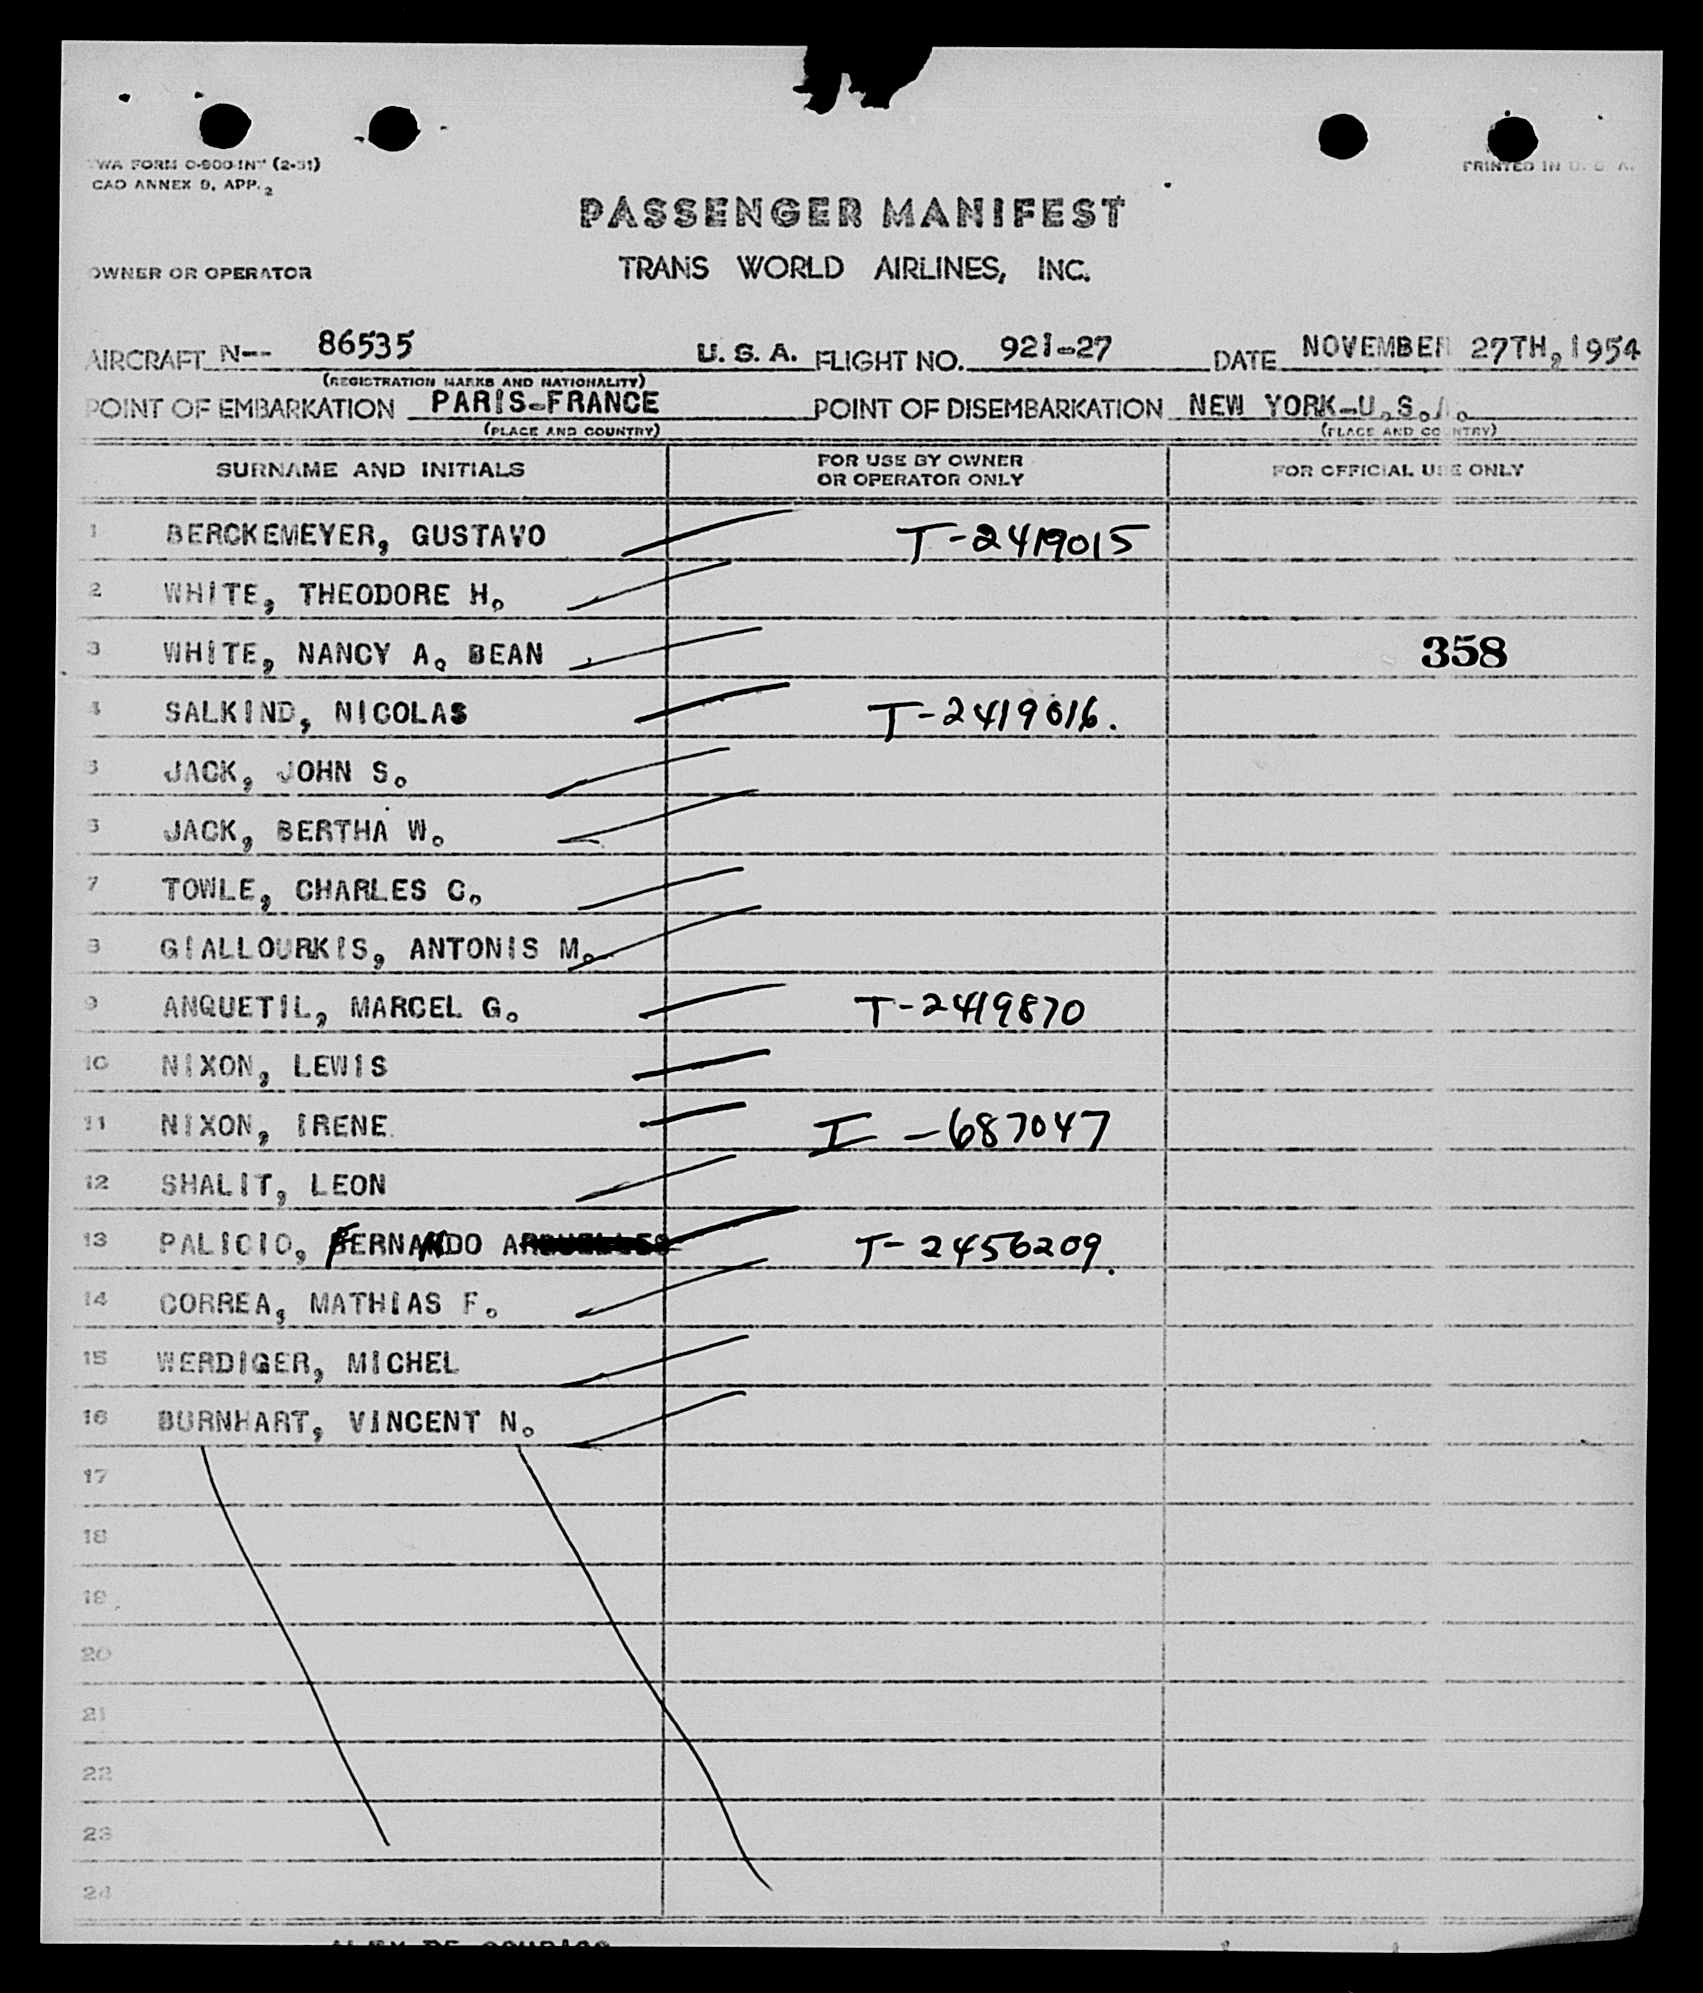 TWA FORM O-900-INT (2-51)
CAO ANNEX 9, APP. 2
PRINTED IN U. S. A.
PASSENGER MANIFEST
OWNER OR OPERATOR
TRANS WORLD AIRLINES, INC.
AIRCRAFT N-- 86535 U. S. A. FLIGHT NO. 921-27 DATE NOVEMBER 27TH, 1954
(REGISTRATION MARKS AND NATIONALITY)
POINT OF EMBARKATION PARIS-FRANCE POINT OF DISEMBARKATION NEW YORK-U.S.A.
(PLACE AND COUNTRY) (PLACE AND COUNTRY)
SURNAME AND INITIALS FOR USE BY OWNER OR OPERATOR ONLY FOR OFFICIAL USE ONLY
1 BERCKEMEYER, GUSTAVO T-2419015
2 WHITE, THEODORE H.
3 WHITE, NANCY A. BEAN 358
4 SALKIND, NICOLAS T-2419016.
5 JACK, JOHN S.
6 JACK, BERTHA W.
7 TOWLE, CHARLES C.
8 GIALLOURKIS, ANTONIS M.
9 ANQUETIL, MARCEL G. T-2419870
10 NIXON, LEWIS
11 NIXON, IRENE I-687047
12 SHALIT, LEON
13 PALICIO, FERNANDO T-2456209.
14 CORREA, MATHIAS F.
15 WERDIGER, MICHEL
16 BURNHART, VINCENT N.
17
18
19
20
21
22
23
24